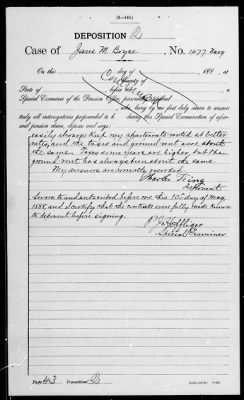 [3—446.]
DEPOSITION D
Case of Jane M. Boyce, No. 1477 Navy
On this day of, 188, at
, county of
State of, before me,
Special Examiner of the Pension Office, personally appeared
, who, being by me first duly sworn to answer
truly all interrogatories propounded to h during this Special Examination of aforesaid
pension claim, deposes and says:
easily always keep my apartments rented at better
rates, and the taxes and ground rent were about
the same. Taxes some years are higher, but the
ground rent has always been about the same.
My answers are correctly recorded.
Charles
Deponent
Sworn to and subscribed before me this 10" day of May
1888 and I certify that the contents were fully made known
to deponent before signing.
Special Examiner
Page 43 Deposition D